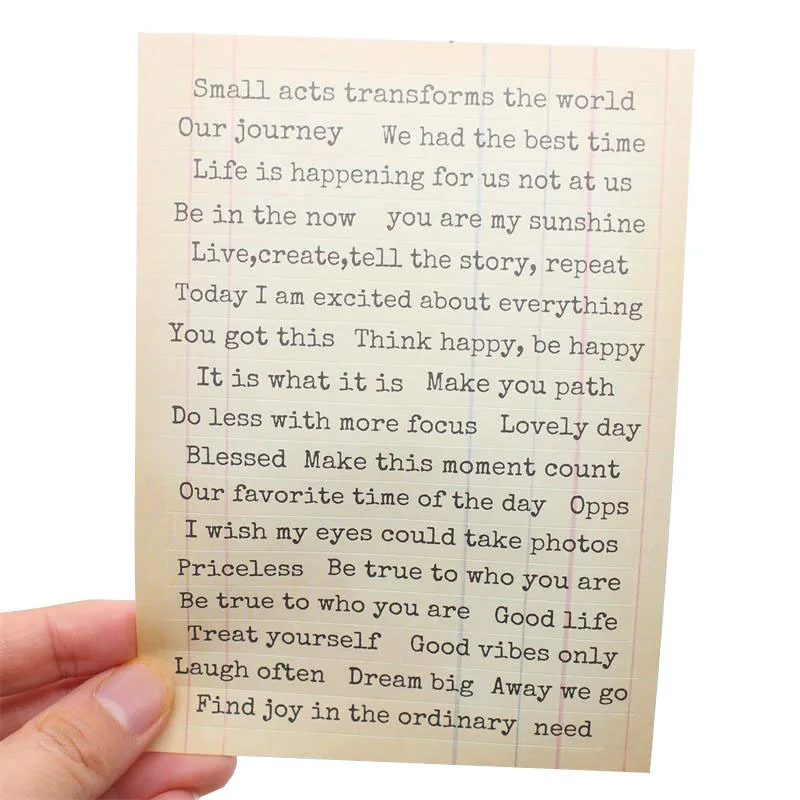 Small acts transforms the world
Our journey We had the best time
Life is happening for us not at us
Be in the now you are my sunshine
Live,create,tell the story, repeat
Today I am excited about everything
You got this Think happy, be happy
It is what it is Make you path
Do less with more focus Lovely day
Blessed Make this moment count
Our favorite time of the day Opps
I wish my eyes could take photos
Priceless Be true to who you are
Be true to who you are Good life
Treat yourself Good vibes only
Laugh often Dream big Away we go
Find joy in the ordinary need